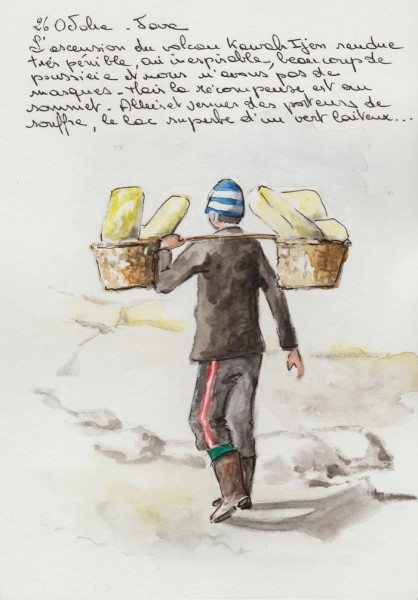 26 Octobre - Java
L'ascension du volcan Kawah Ijen rendue
très pénible, air irrespirable, beaucoup de
poussière et nous n'avons pas de
masques - Mais la récompense est au
sommet. Aller et venues des porteurs de
souffre, le lac superbe d'un vert laiteux...